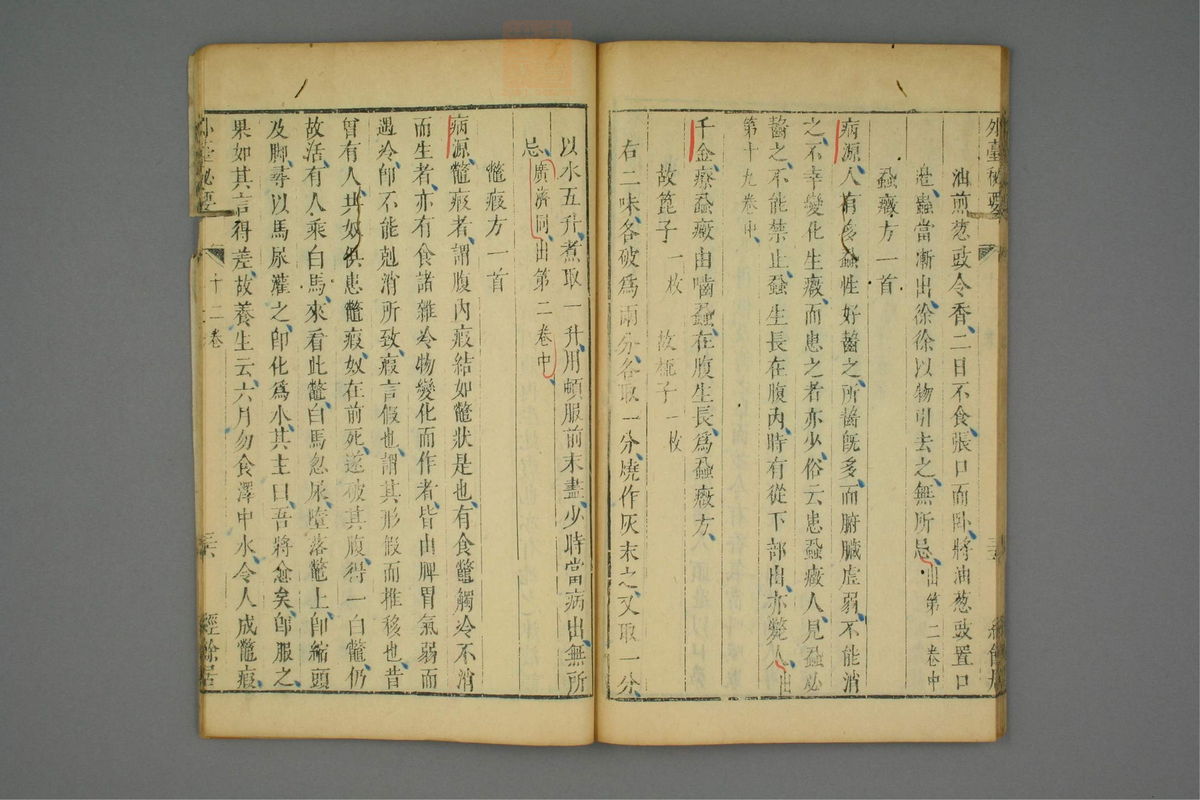 外臺秘要
油煎葱豉令香二日不食張口而卧將油葱豉置口
邊蟲當漸出徐徐以物引去之無所忌出第二卷中
蝨癥方一首
病源人有多蝨性好齧之所齧旣多而腑臟虛弱不能消
之不幸變化生癥而患之者亦少俗云患蝨癥人見蝨必
齧之不能禁止蝨生長在腹內時有從下部出亦斃人出
第十九卷中
千金療蝨癥由嚙蝨在腹生長爲蝨癥方
故篦子一枚 故梳子一枚
右二味各破爲兩分各取一分燒作灰末之又取一分
以水五升煮取一升用頓服前末盡少時當病出無所
忌廣濟同出第二卷中
鼈瘕方一首
病源鼈瘕者謂腹內瘕結如鼈狀是也有食鼈觸冷不消
而生者亦有食諸雜冷物變化而作者皆由脾胃氣弱而
遇冷卽不能剋消所致瘕言假也謂其形假而推移也昔
曾有人共奴俱患鼈瘕奴在前死遂破其腹得一白鼈仍
故活有人乘白馬來看此鼈白馬忽尿墮落鼈上卽縮頭
及脚尋以馬尿灌之卽化爲水其主曰吾將愈矣卽服之
果如其言得差故養生云六月勿食澤中水令人成鼈瘕
外臺秘要 十二卷 三六 經餘居